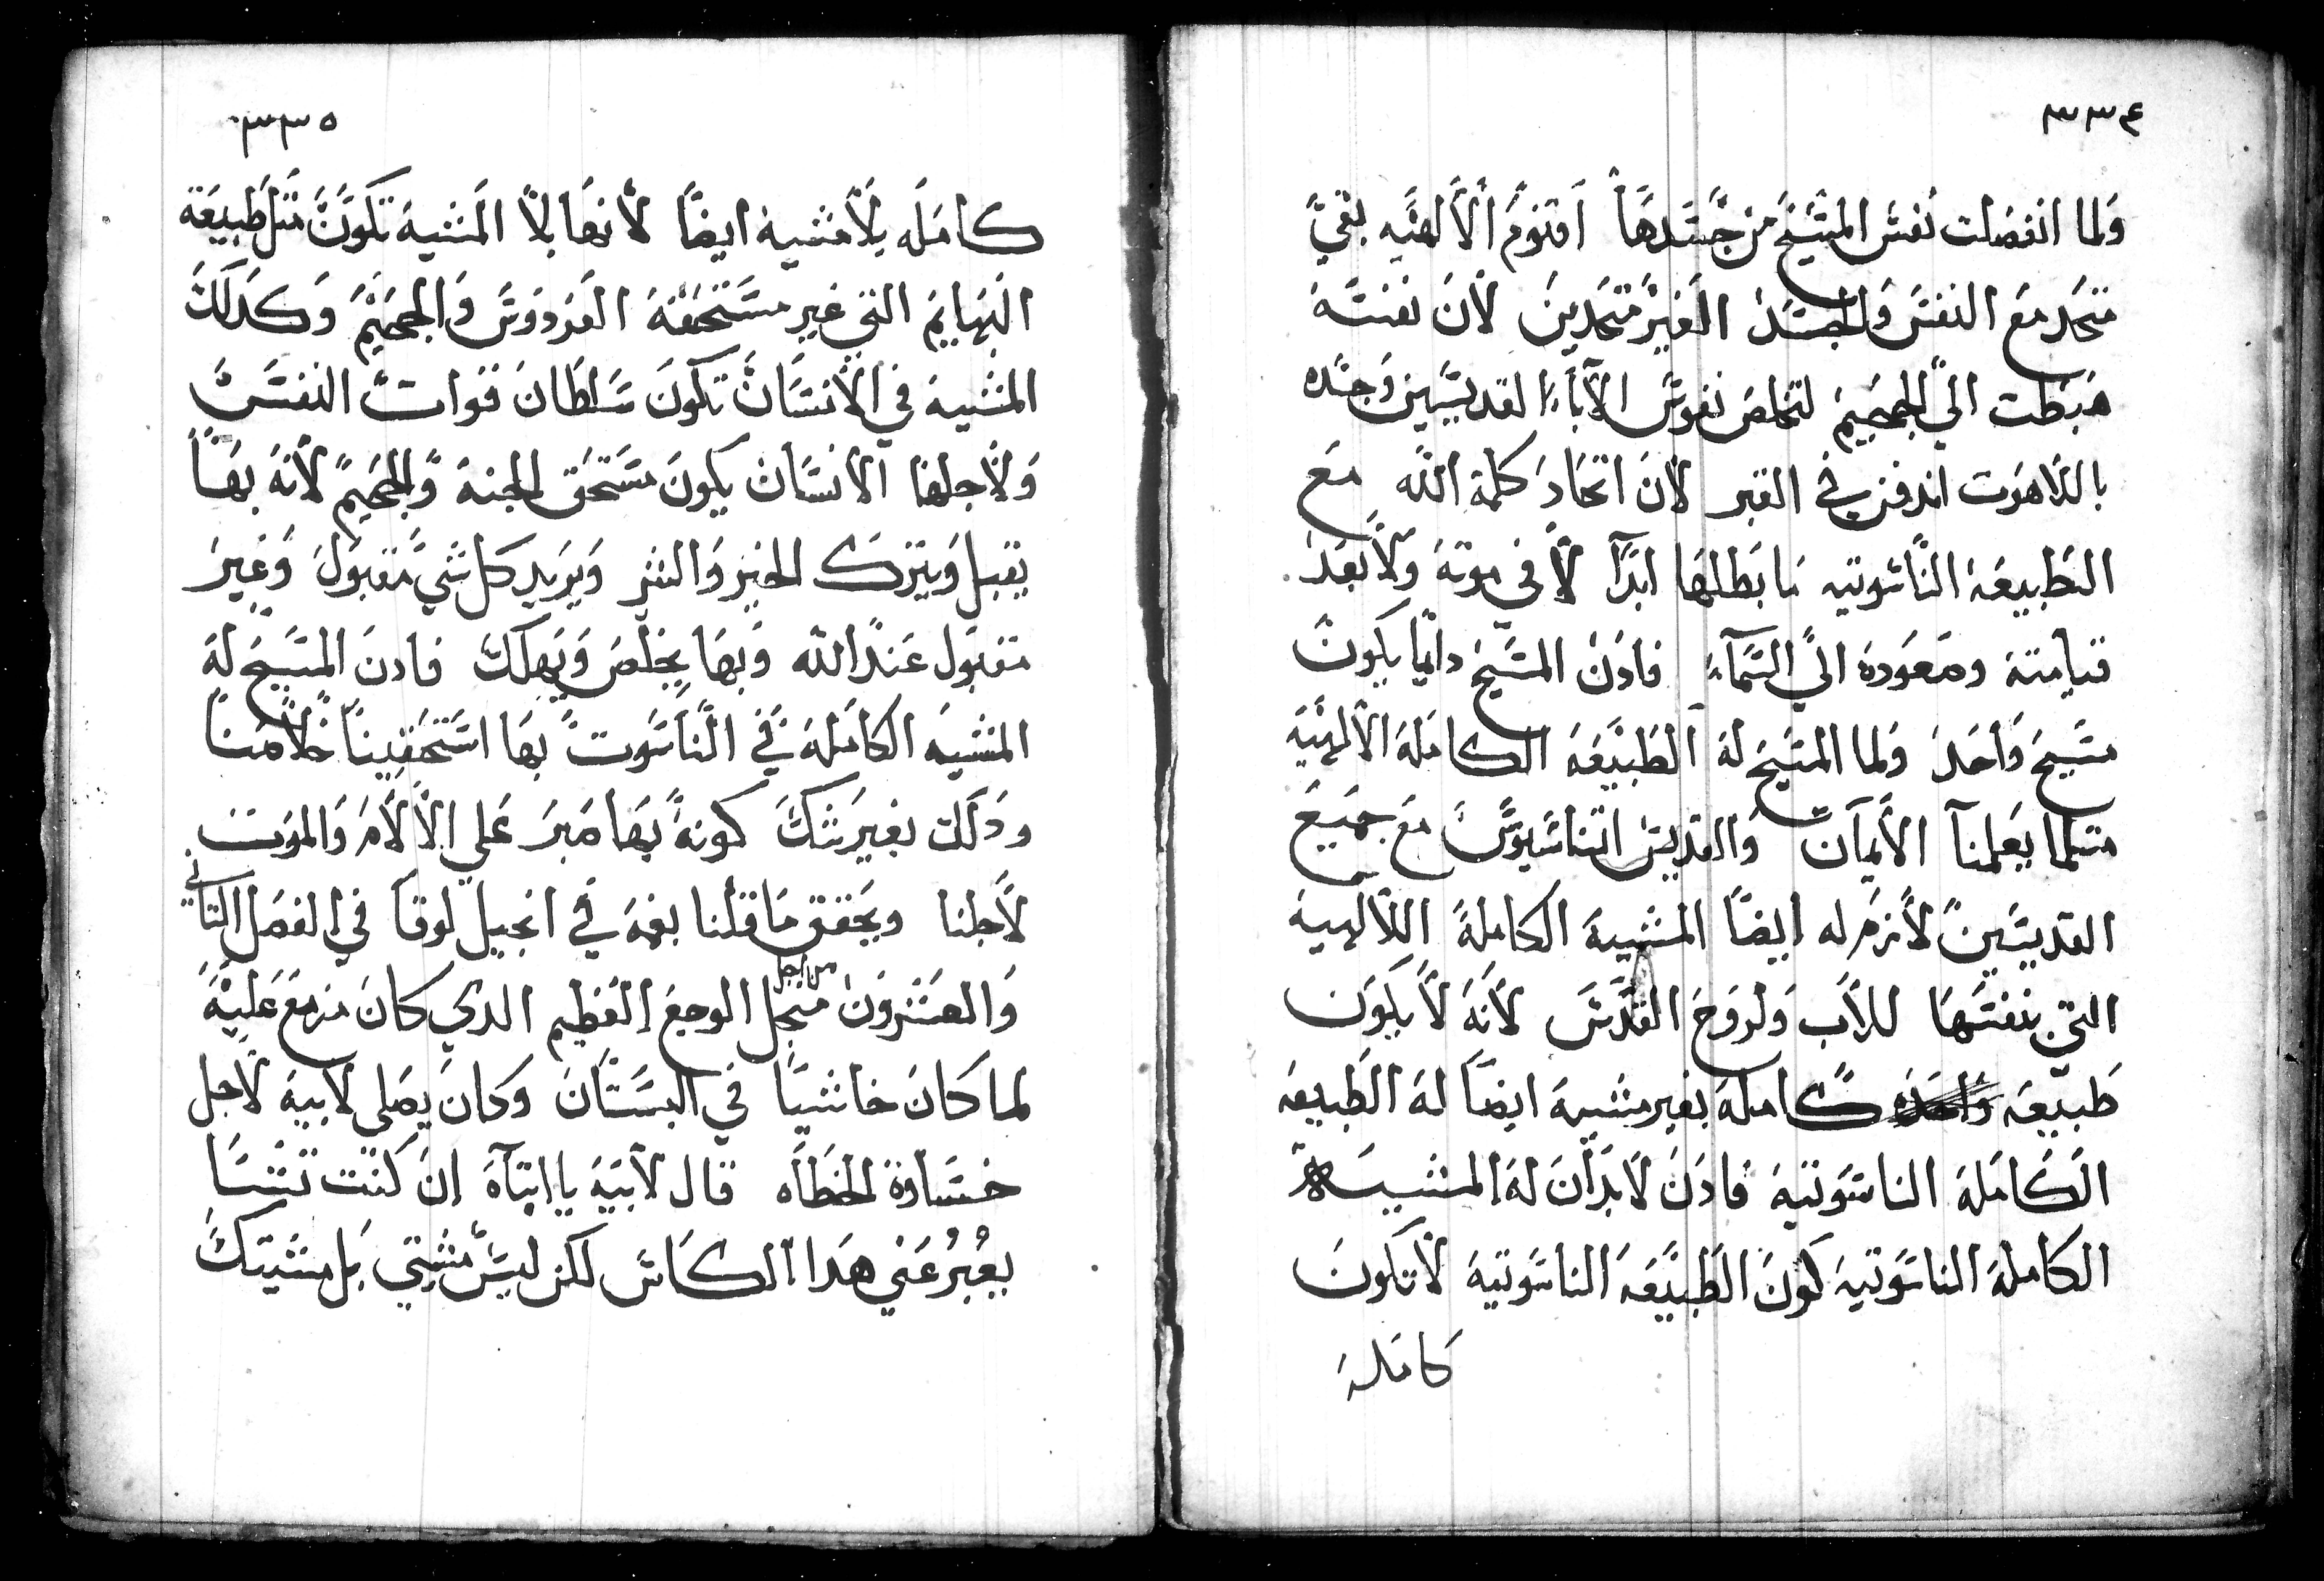 ٣٣٤
ولما انفصلت نفس المسيح من جسدها اقنوم الالهيه بقي
متحد مع النفس والجسد الغير متحدين لان نفسه
هبطت الي الجحيم لتخلص نفوس الآباء القديسين وجسده
باللاهوت اندفن في القبر لان اتحاد كلمة الله مع
الطبيعة الناسوتيه ما بطلها ابدًا لا في موته ولا بعد
قيامته وصعوده الي السمآء فادن المسيح دايما يكون
مسيح واحد ولما المسيح له الطبيعه الكامله الالهيه
متلما يعلمنا الأيمان والقديس اتناسيوس مع جميع
القديسين لازم له ايضًا المشيه الكاملة اللالهيه
التي بنفسها للاب ولروح القدس لانه لا يكون
طبيعه كامله بغير مشيه ايضًا له الطبيعه
الكامله الناسوتيه فادن لا بد ان له المشيه
الكامله الناسوتيه كون الطبيعه الناسوتيه لا تكون
كامله
٣٣٥
كامله بلا مشيه ايضًا لانها بلا المشيه تكون متل طبيعة
البهايم التي غير مستحقة الفردوس والجحيم وكدلك
المشيه في الانسان تكون سلطان قوات النفس
ولاجلها الانسان يكون مستحق الجنه والجحيم لانه بها
يقبل ويترك الخير والشر ويريد كل شي مقبول وغير
مقبول عند الله وبها يخلص ويهلك فادن المسيح له
المشيه الكامله في الناسوت بها استحقينا خلاصنا
ودلك بغير شك كونه بها صبر علي الالام والموت
لاجلنا ويحقق ما قلنا بفمه في انجيل لوقا في الفصل التاني
والعشرون من اجل منجل الوجع العظيم الدي كان مزمع عليه
لما كان خاشيًا في البستان وكان يصلي لابيه لاجل
خساوة الخطاه قال لابيه يا ابتاه ان كنت تشا
يعبر عني هدا الكاس لكن ليس مشيتي بل مشيتك